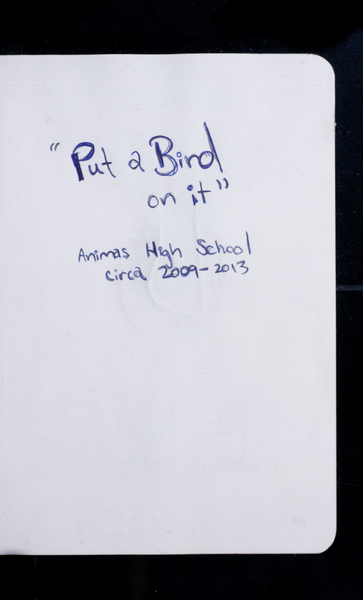 "Put a Bird
on it"
Animas High School
circa 2009-2013